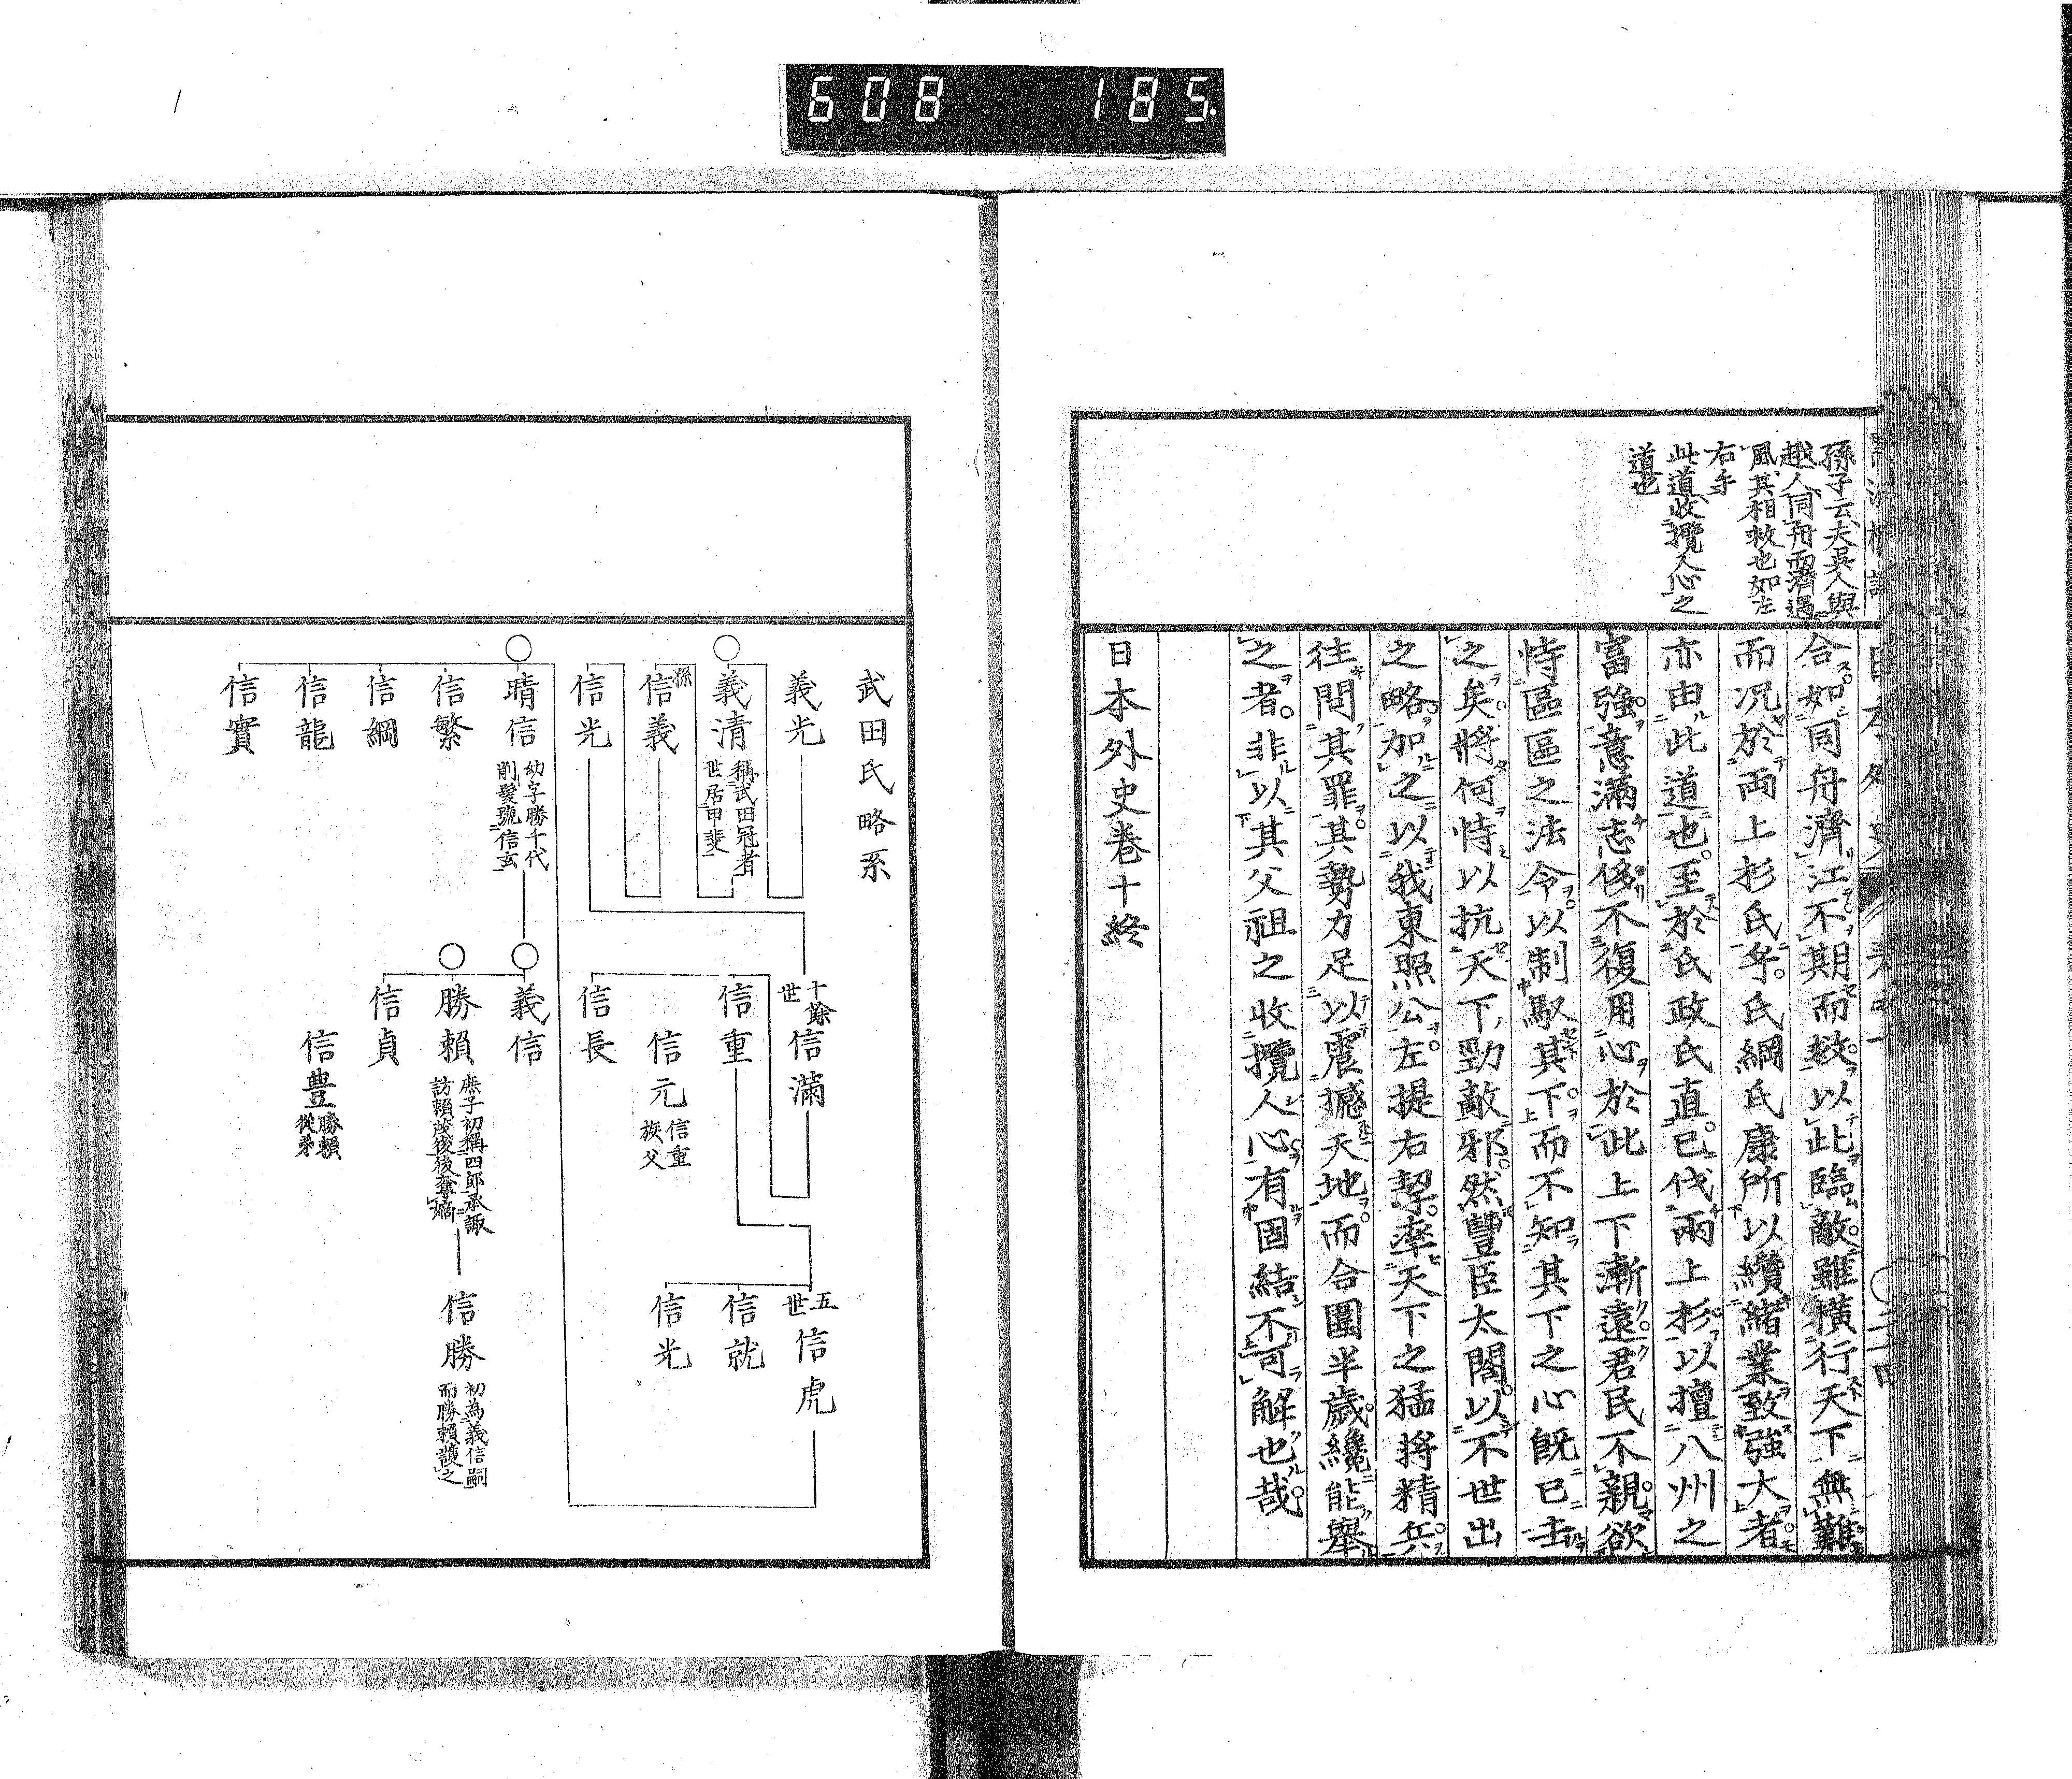 608 185.
孫子云夫吳人與
越人同舟而濟遇
風其相救也如左
右手
此道收攬人心之
道也
合如同舟濟江不期而救以此臨敵雖橫行天下無難
而况於兩上杉氏乎氏綱氏康所以纘緒業致強大者
亦由此道也至於氏政氏直已伐兩上杉以擅八州之
富強意滿志侈不復用心於此上下漸遠君民不親欲
恃區區之法令以制馭其下而不知其下之心既已去
之矣將何恃以抗天下勁敵邪然豐臣太閤以不世出
之略加之以我東照公左提右挈率天下之猛將精兵
往問其罪其勢力足以震撼天地而合圍半歲纔能舉
之者非以其父祖之收攬人心有固結不可解也哉
日本外史卷十終
武田氏略系
義光
義清
稱武田冠者
世居甲斐
孫
信義
信光
十餘
世
信滿
信重
信元
信重
族父
信長
五
世
信虎
信就
信光
晴信
幼字勝千代
削髮號信玄
信繁
信綱
信龍
信實
義信
勝賴
庶子初稱四郎承諏
訪賴茂後後奪嫡
信貞
信豊
勝賴
從弟
信勝
初為義信嗣
而勝賴護之